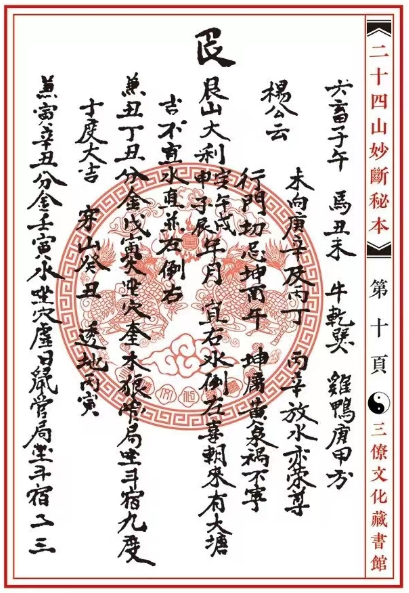 二十四山妙斷秘本
第十頁
三僚文化藏書館
艮
六畜子午 馬丑未 牛乾巽 雞鴨庚甲方
未向庚辛及丙丁 丙辛放水亦榮尊
楊公云 行門切忌坤甬午 坤庚黃泉禍不寧
艮山大利申子辰寅午戌年月 宜右水倒左喜朝來有大塘
吉不宜水直并左倒右
兼丑丁丑分金戊寅火坐穴奎木狼管局坐斗宿九度
十度大吉 穿山癸丑 透地丙寅
兼寅辛丑分金壬寅水坐穴虛日鼠管局坐斗宿二三